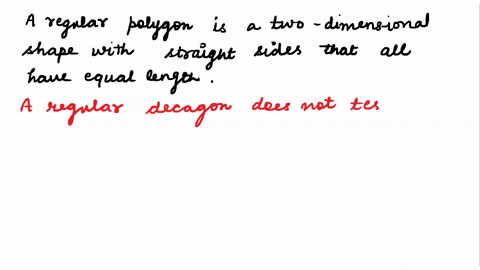 A regular polygon is a two-dimensional
shape with straight sides that all
have equal length.
A regular decagon does not tes